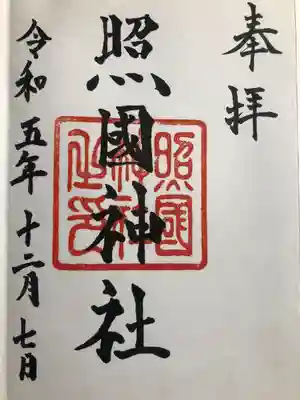 奉拝
照國神社
照国神社之印
令和五年十二月七日